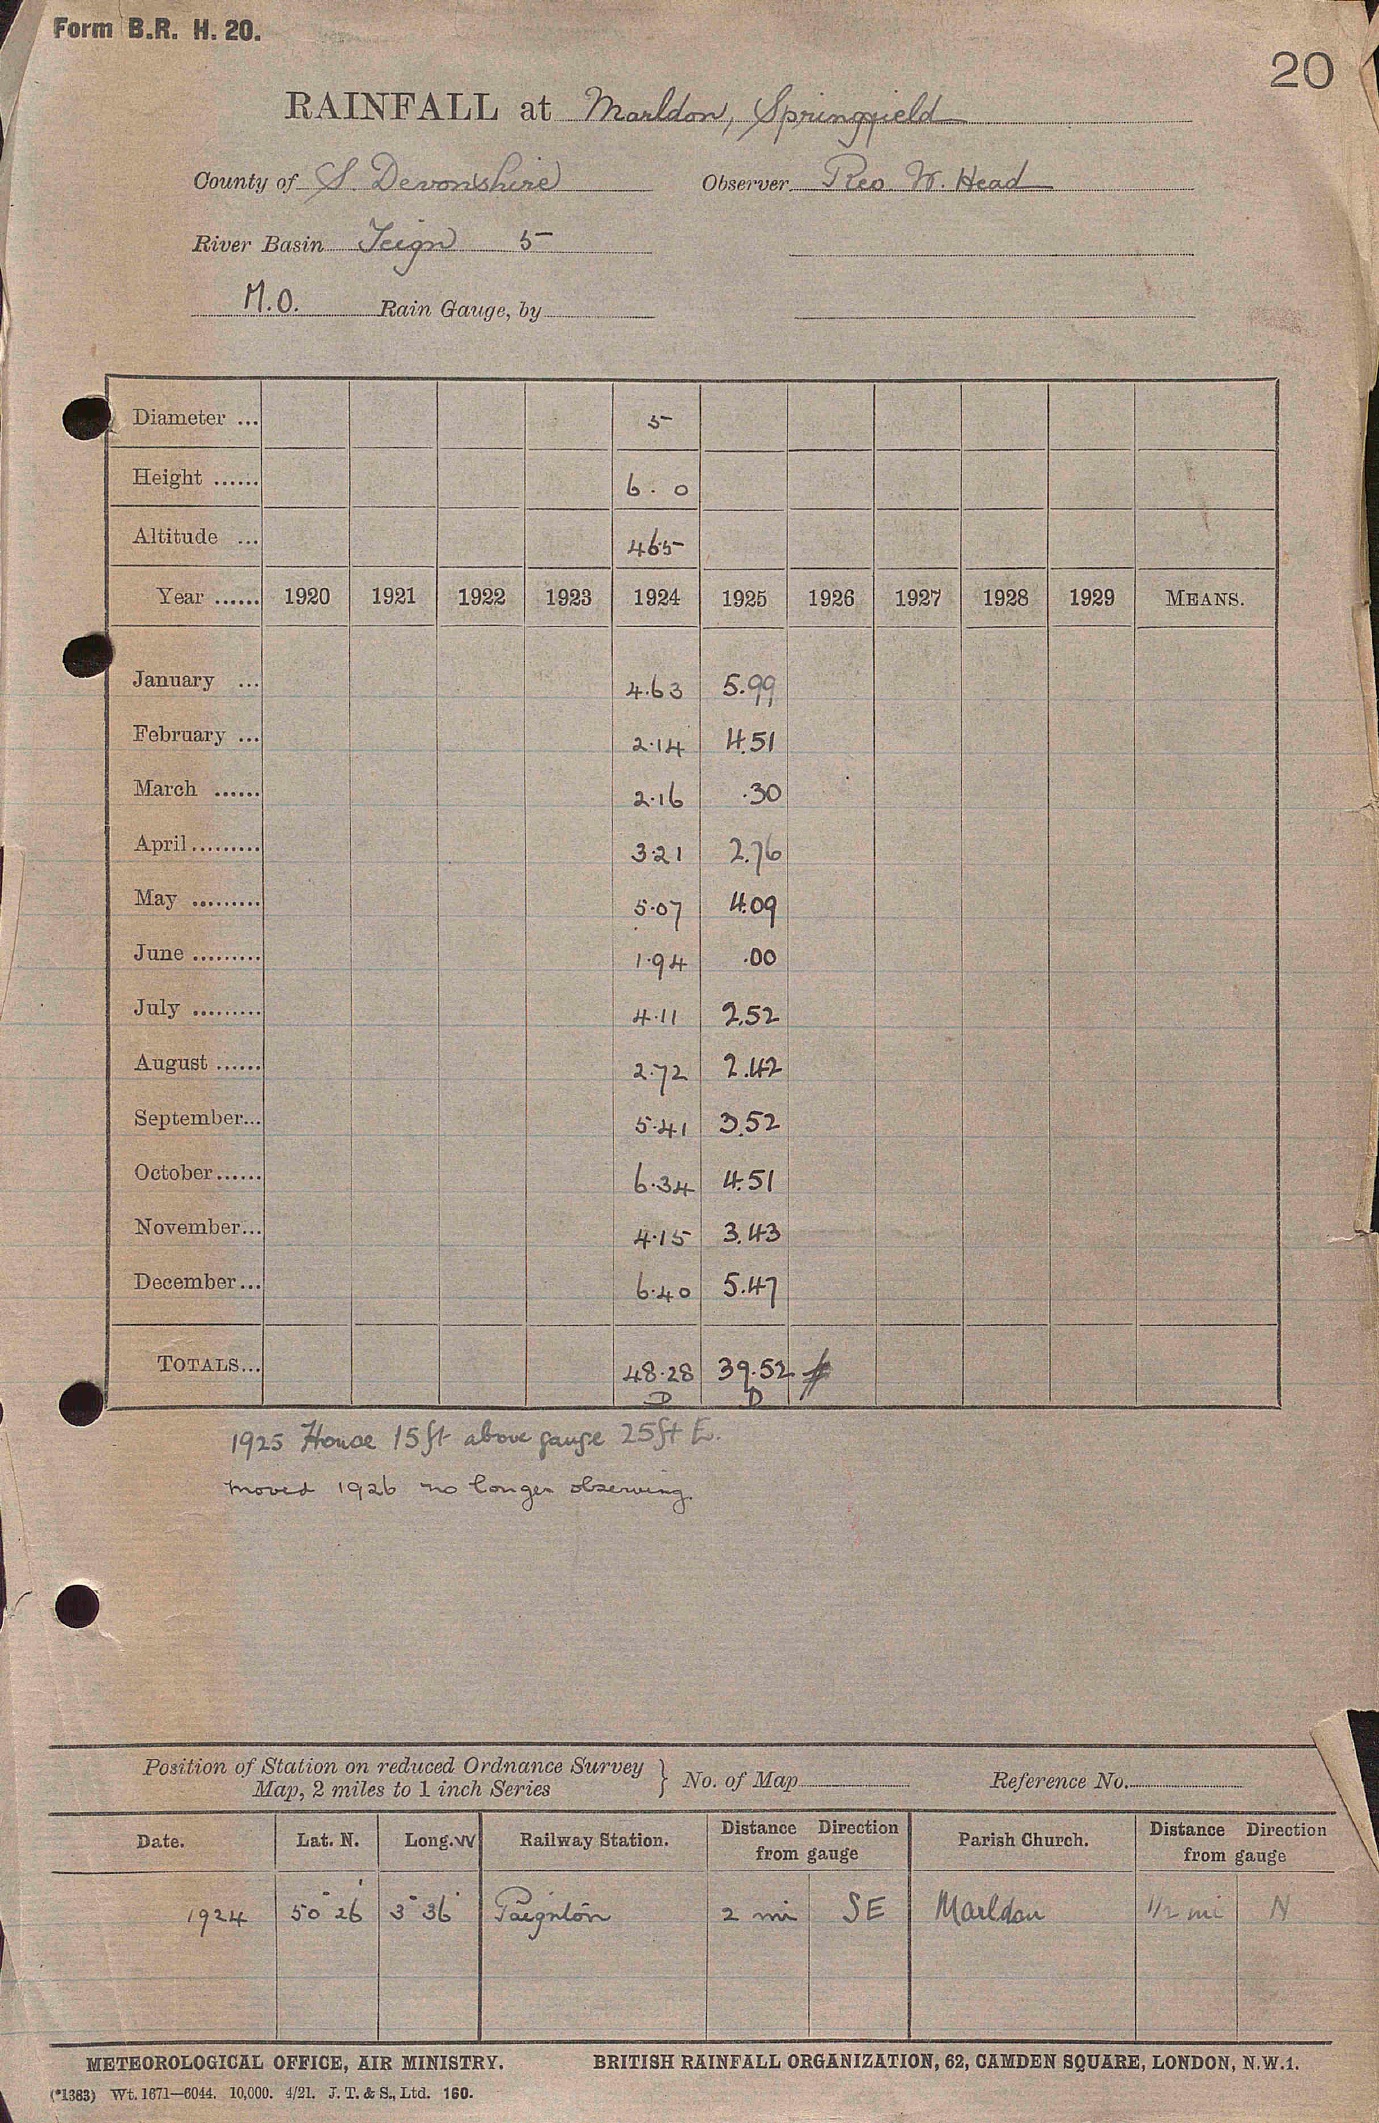 Form B.R. H. 20.
20
RAINFALL at Marldon, Springfield
County of S. Devonshire Observer Rev. W. Head
River Basin Teign 5
M.O. Rain Gauge, by
Diameter ... 5
Height ...... 6. 0
Altitude ... 465
Year ...... 1920 1921 1922 1923 1924 1925 1926 1927 1928 1929 MEANS.
January ... 4.63 5.99
February ... 2.14 4.51
March ...... 2.16 .30
April ......... 3.21 2.76
May ......... 5.07 4.09
June ......... 1.94 .00
July ......... 4.11 2.52
August ...... 2.72 2.42
September... 5.41 3.52
October...... 6.34 4.51
November... 4.15 3.43
December... 6.40 5.47
TOTALS... 48.28 39.52
D D
1925 House 15ft above gauge 25ft E.
moved 1926 no longer observing
Position of Station on reduced Ordnance Survey
Map, 2 miles to 1 inch Series } No. of Map Reference No.
Date. Lat. N. Long. W Railway Station. Distance Direction from gauge Parish Church. Distance Direction from gauge
1924 50° 26' 3° 36' Paignton 2 mi SE Marldon 1/2 mi N
METEOROLOGICAL OFFICE, AIR MINISTRY. BRITISH RAINFALL ORGANIZATION, 62, CAMDEN SQUARE, LONDON, N.W.1.
(*1383) Wt. 1671—6044. 10,000. 4/21. J. T. & S., Ltd. 160.